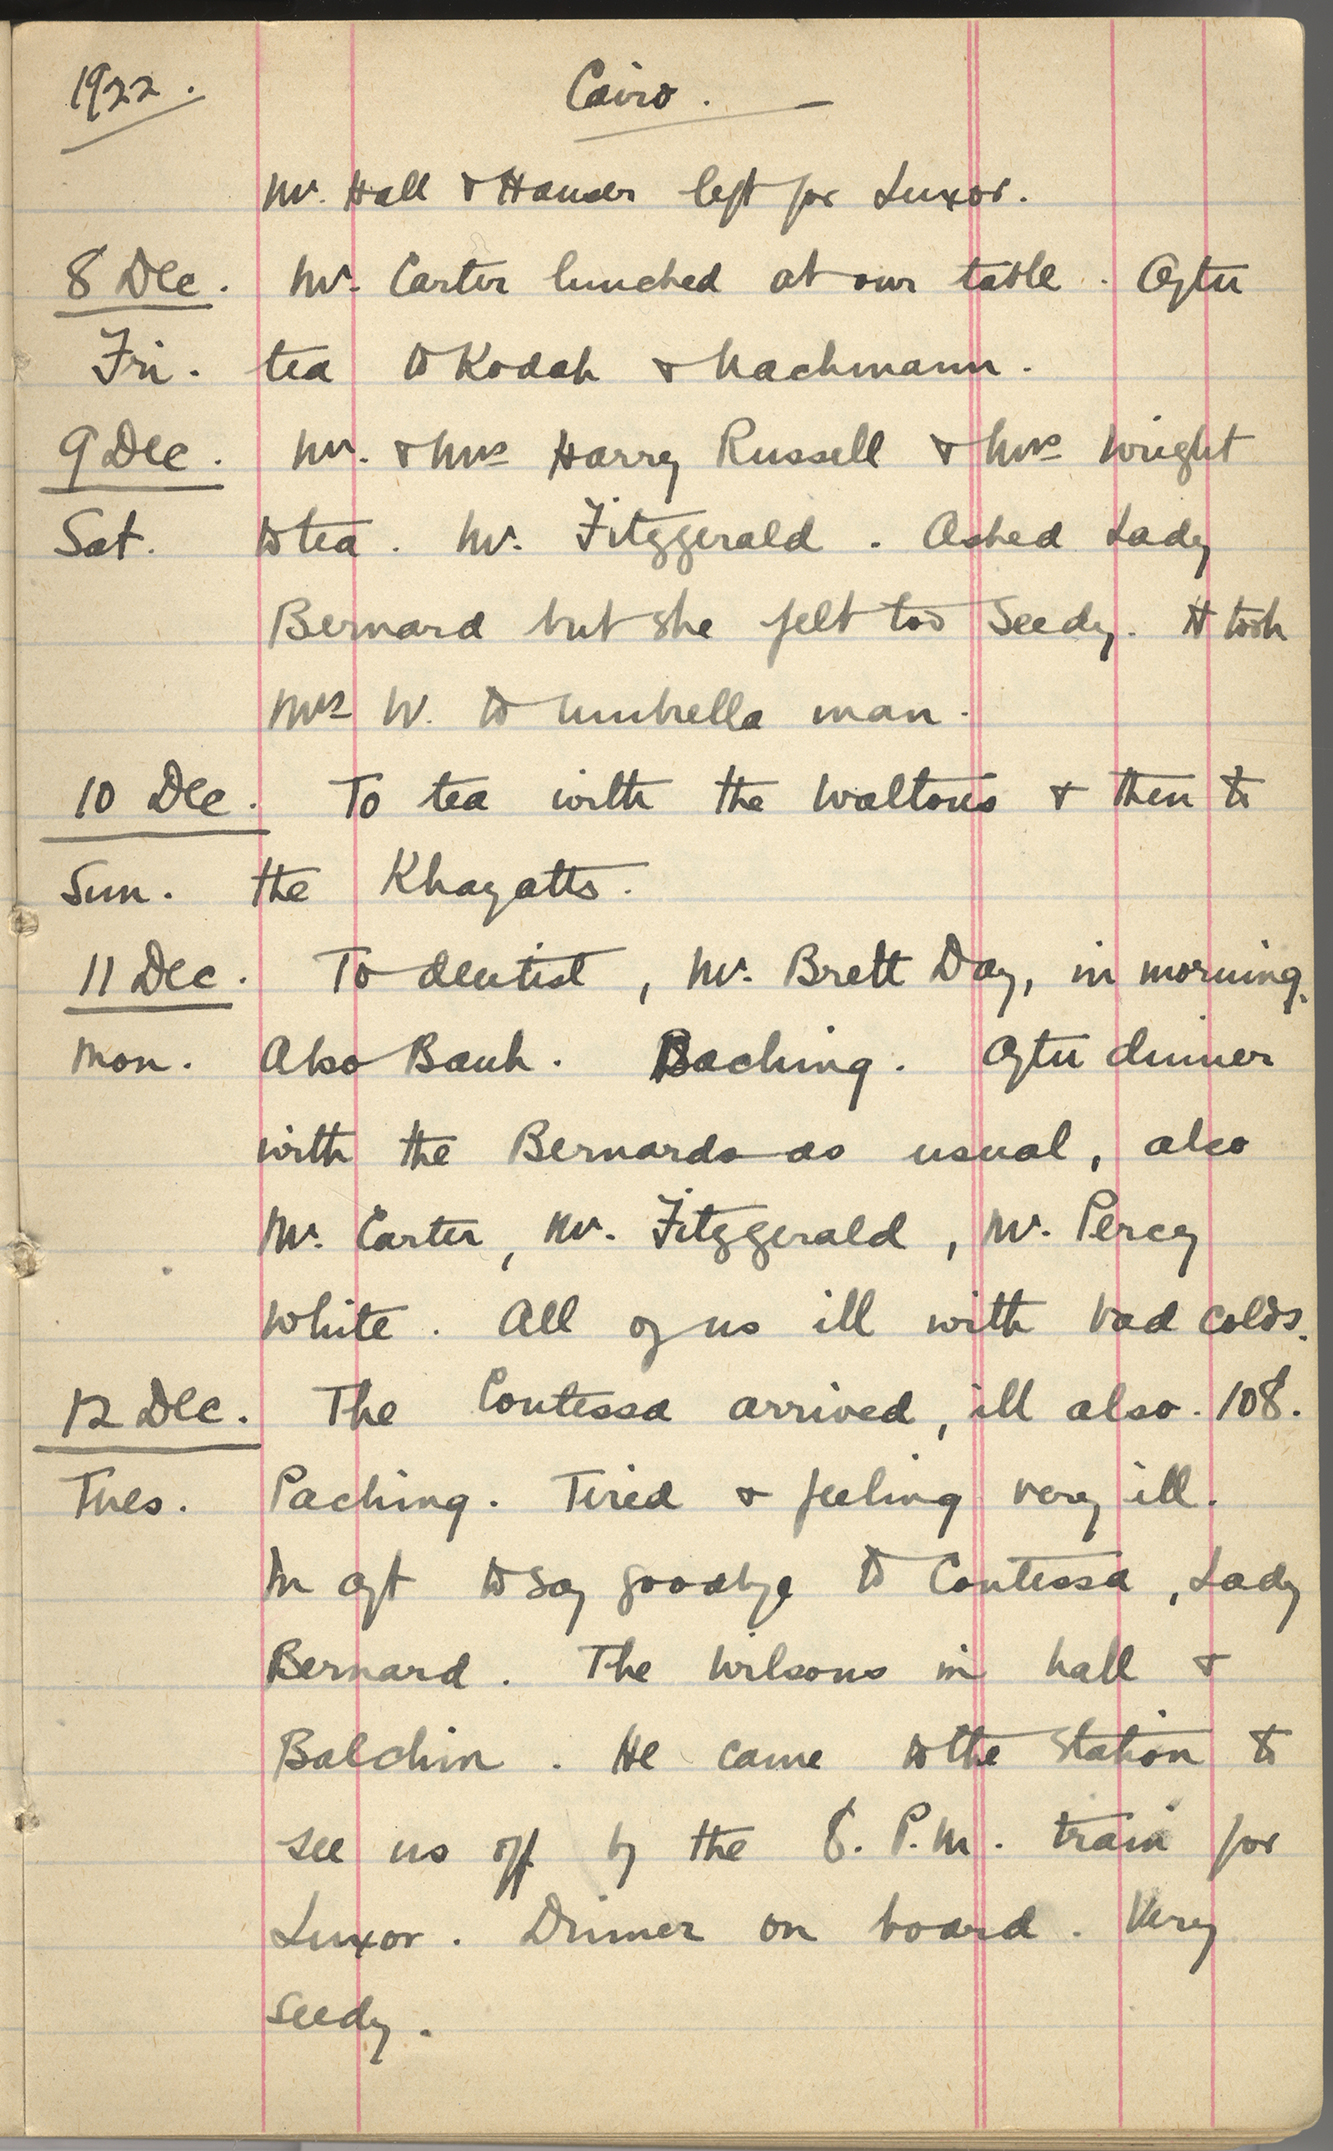 1922. Cairo.
Mr. Hall & Hauser left for Luxor.
8 Dec. Mr. Carter lunched at our table. After
Fri. tea to Kodak & Nachmann.
9 Dec. Mr. & Mrs Harry Russell & Mrs Wright
Sat. to tea. Mr. Fitzgerald. Asked Lady
Bernard but she felt too seedy. H took
Mrs W. to umbrella man.
10 Dec. To tea with the Waltons & then to
Sun. the Khayatts.
11 Dec. To dentist, Mr. Brett Day, in morning.
Mon. Also Bank. Packing. After dinner
with the Bernards as usual, also
Mr. Carter, Mr. Fitzgerald, Mr. Percy
White. All of us ill with bad colds.
12 Dec. The Contessa arrived, ill also. 108.
Tues. Packing. Tired & feeling very ill.
In aft to say goodbye to Contessa, Lady
Bernard. The Wilsons in hall &
Balchin. He came to the station to
see us off by the 8. P.M. train for
Luxor. Dinner on board. Very
seedy.